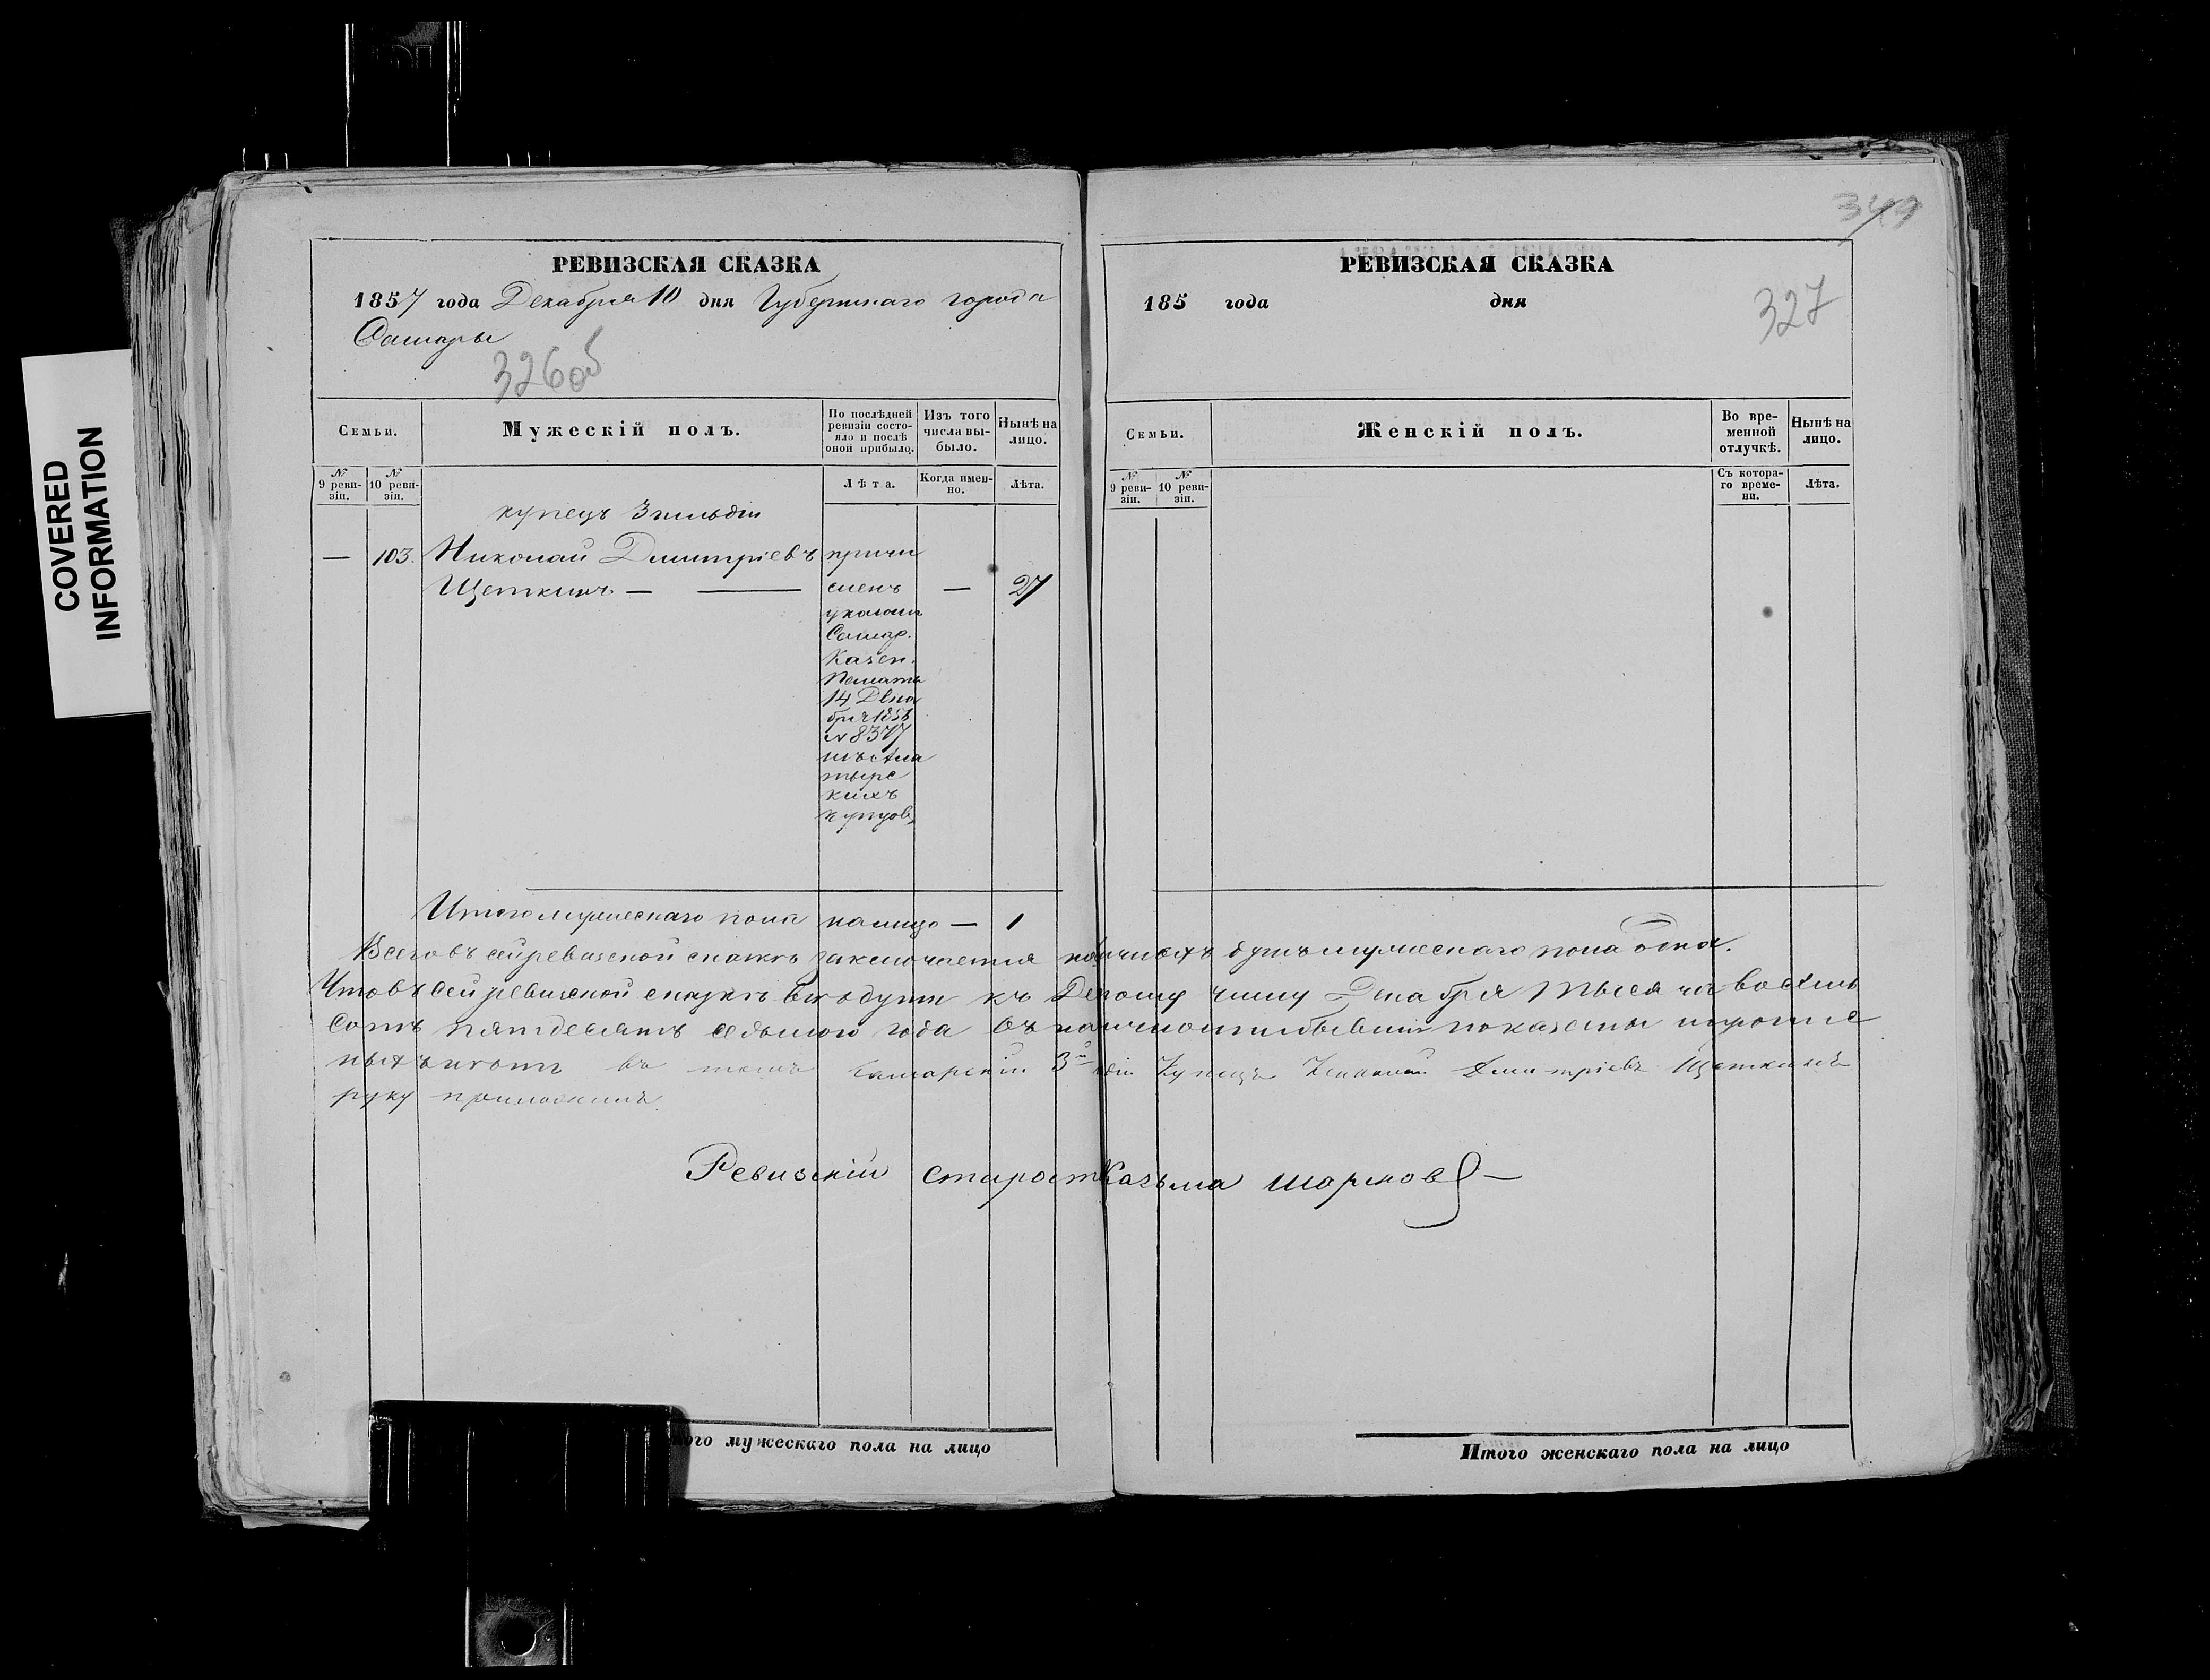 COVERED
INFORMATION
РЕВИЗСКАЯ СКАЗКА
1857 года Декабря 10 дня Губернскаго города
Самары
326об
Семьи.
Мужескій полъ.
По послѣдней ревизіи состояло и послѣ оной прибыло.
Изъ того числа выбыло.
Нынѣ на лицо.
№ 9 ревизіи.
№ 10 ревизіи.
Лѣта.
Когда именно.
Лѣта.
купецъ 3 гильдіи
— 103. Николай Дмитріевъ причи
Щеткинъ — — сленъ — 27
указомъ
Самар.
Казен.
Палаты
14 Дека
бря 185
№ 8377
изъ Ала
тырс
кихъ
купцовъ
Итого мужескаго пола налицо — 1
349
РЕВИЗСКАЯ СКАЗКА
185 года дня
327
Семьи.
Женскій полъ.
Во временной отлучкѣ.
Нынѣ на лицо.
№ 9 ревизіи.
№ 10 ревизіи.
Съ котораго времени.
Лѣта.
Всего въ сей ревизской сказкѣ заключается наличныхъ душъ мужескаго пола одна.
Что въ сей ревизской сказкѣ всѣ души къ Десятому числу Декабря тысяча восемь
сотъ пятдесятъ седьмого года въ наличности бывшія показаны и пропис
ныхъ нѣтъ въ томъ Самарскій 3й гдіи Купецъ Николай Дмитріевъ Щеткинъ
руку приложилъ.
Ревизскій старост Казьма
того мужескаго пола на лицо
Итого женскаго пола на лицо